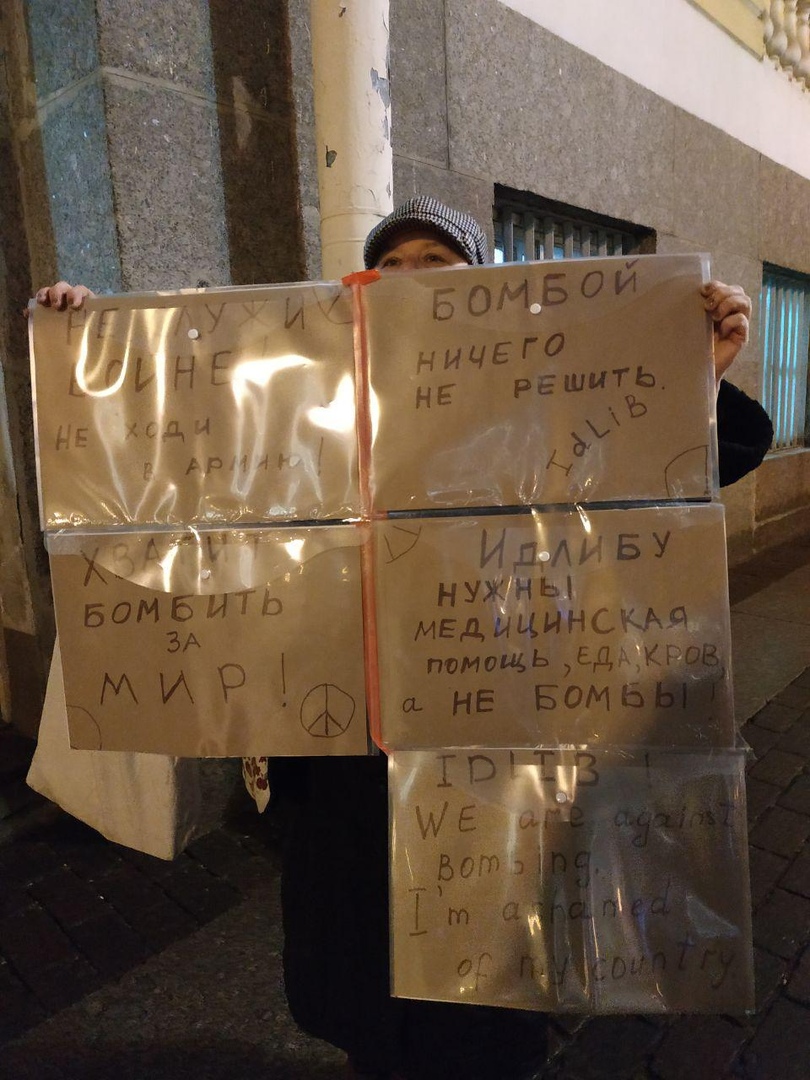 НЕ СЛУЖИ
ВОЙНЕ!
НЕ ХОДИ
В АРМИЮ!
БОМБОЙ
НИЧЕГО
НЕ РЕШИТЬ.
IdLiB
ХВАТИТ
БОМБИТЬ
ЗА
МИР!
ИДЛИБУ
НУЖНЫ
МЕДИЦИНСКАЯ
ПОМОЩЬ, ЕДА, КРОВ,
а НЕ БОМБЫ!
IDLIB!
WE are against
Bombing.
I'm
of my country